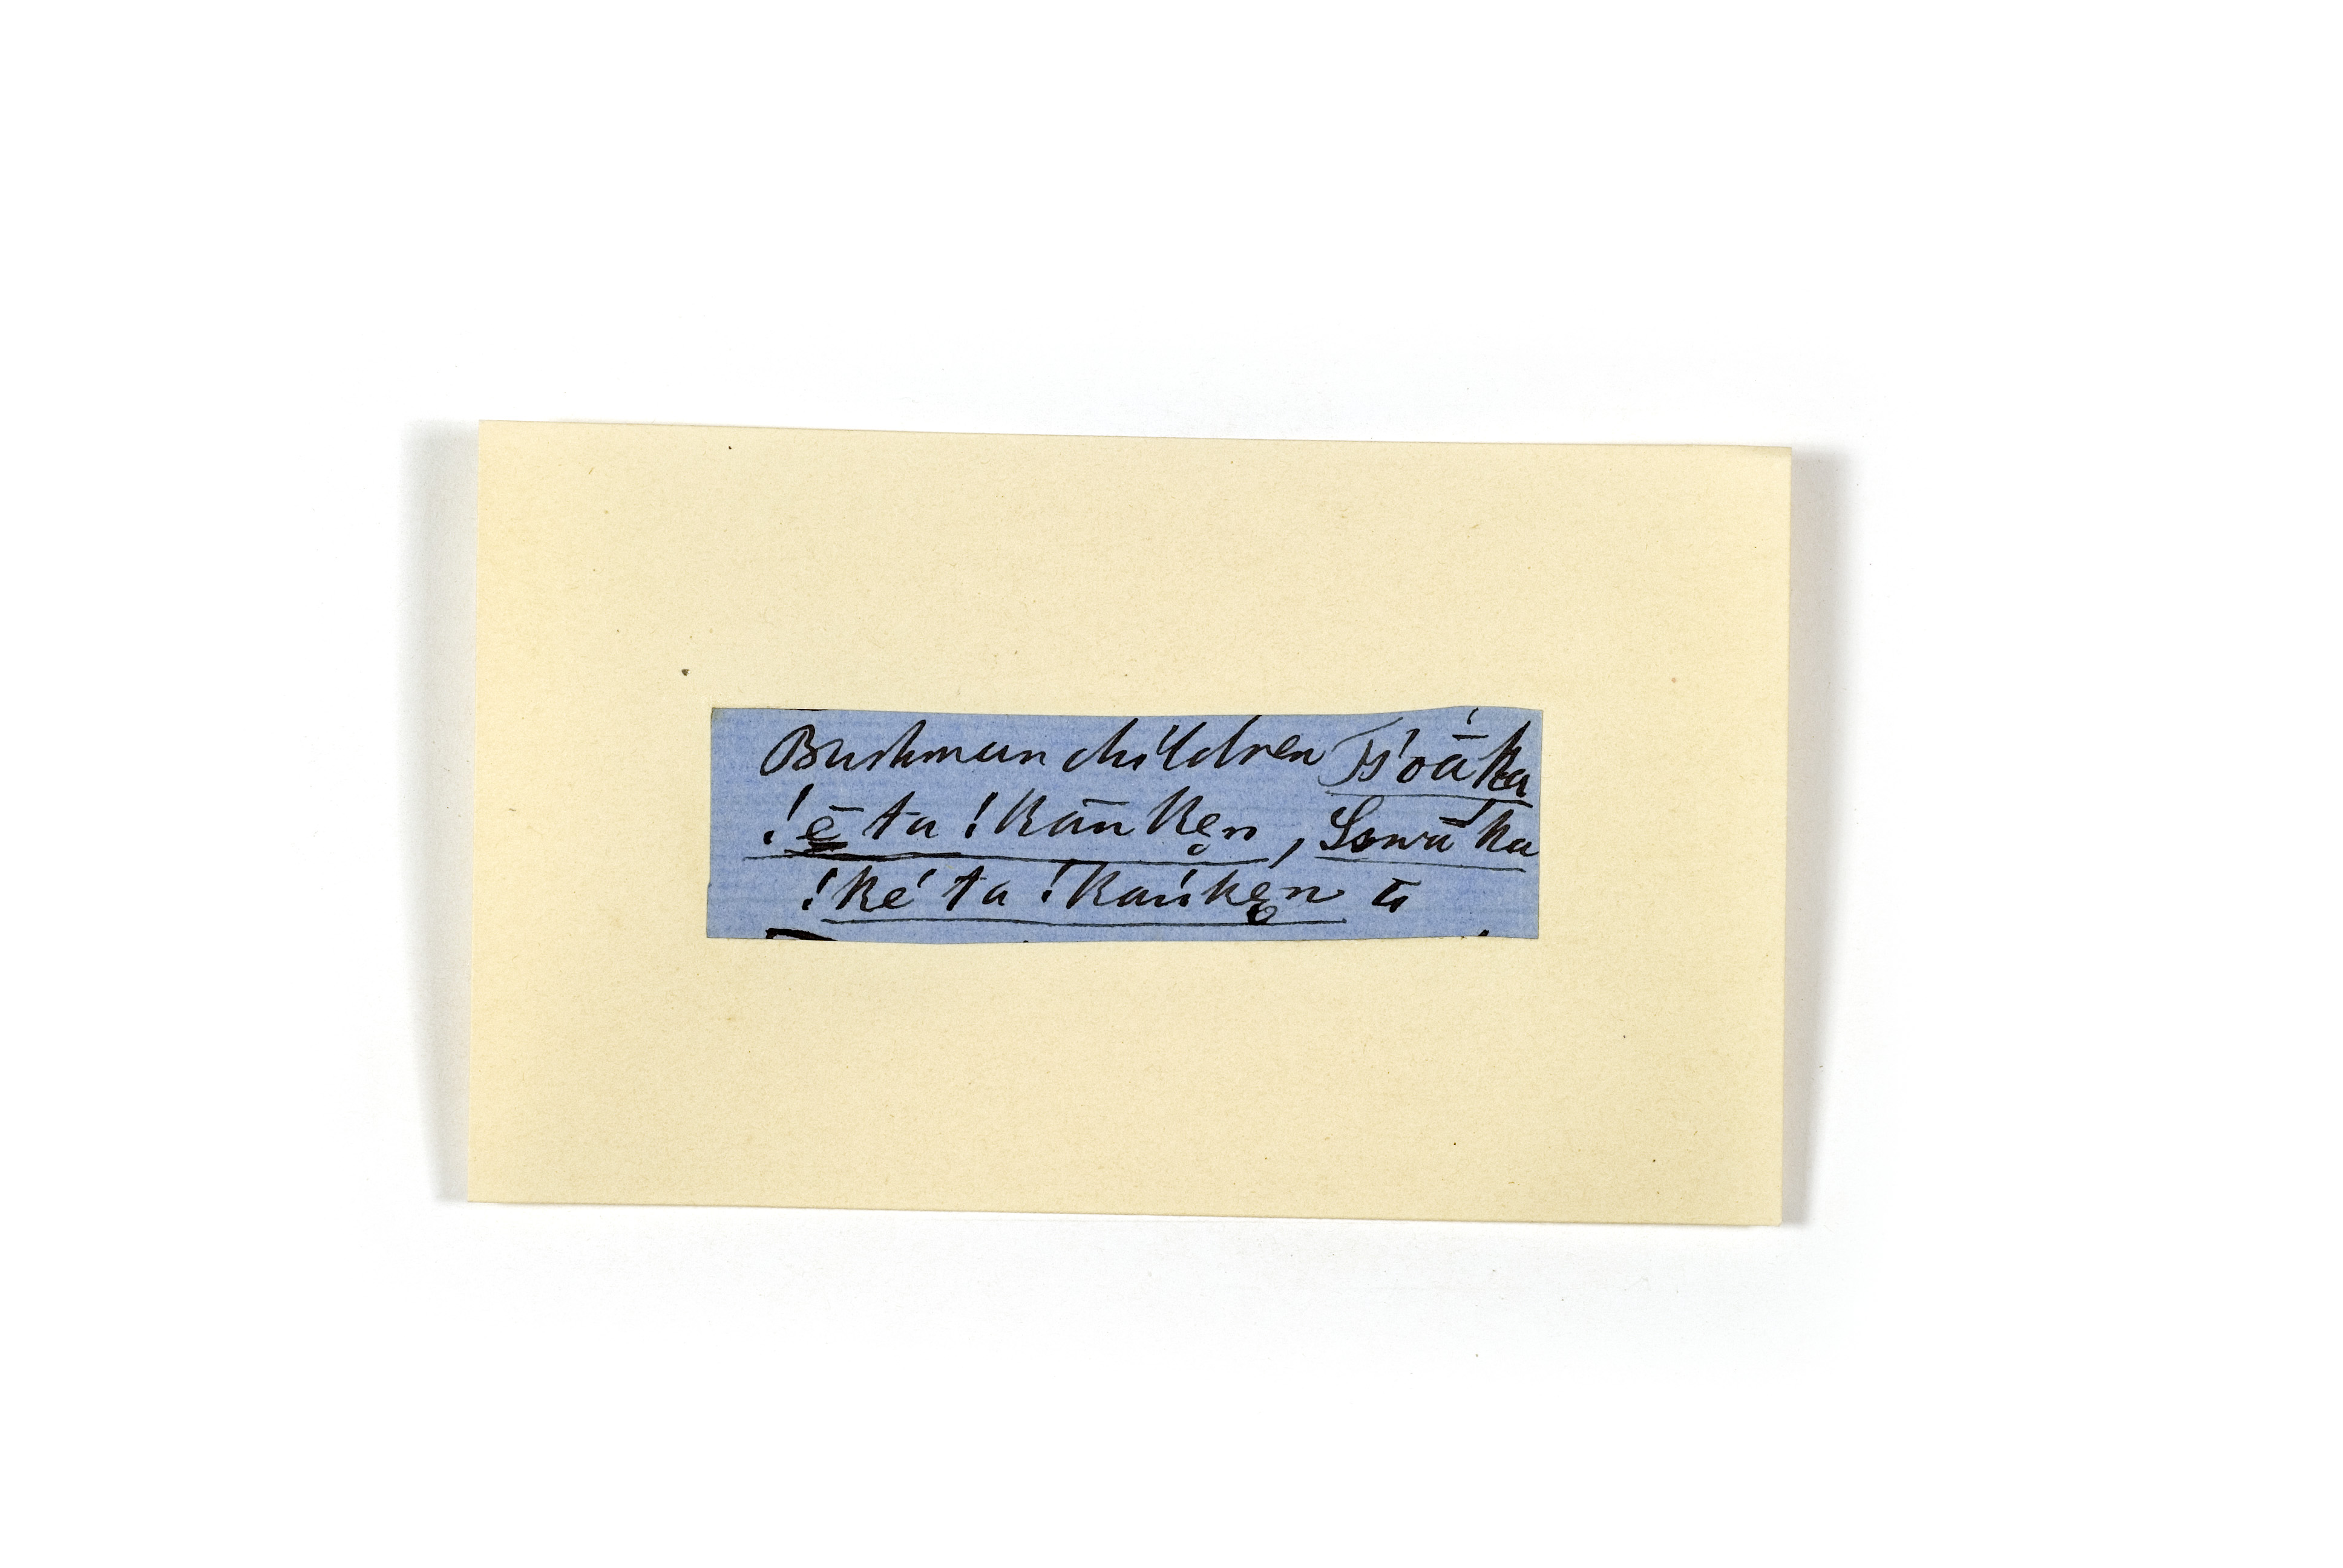 Bushman children Ts'oā ka
!ē ta !kāu ken̥, Sswā ka
!ké ta !kaúken̥